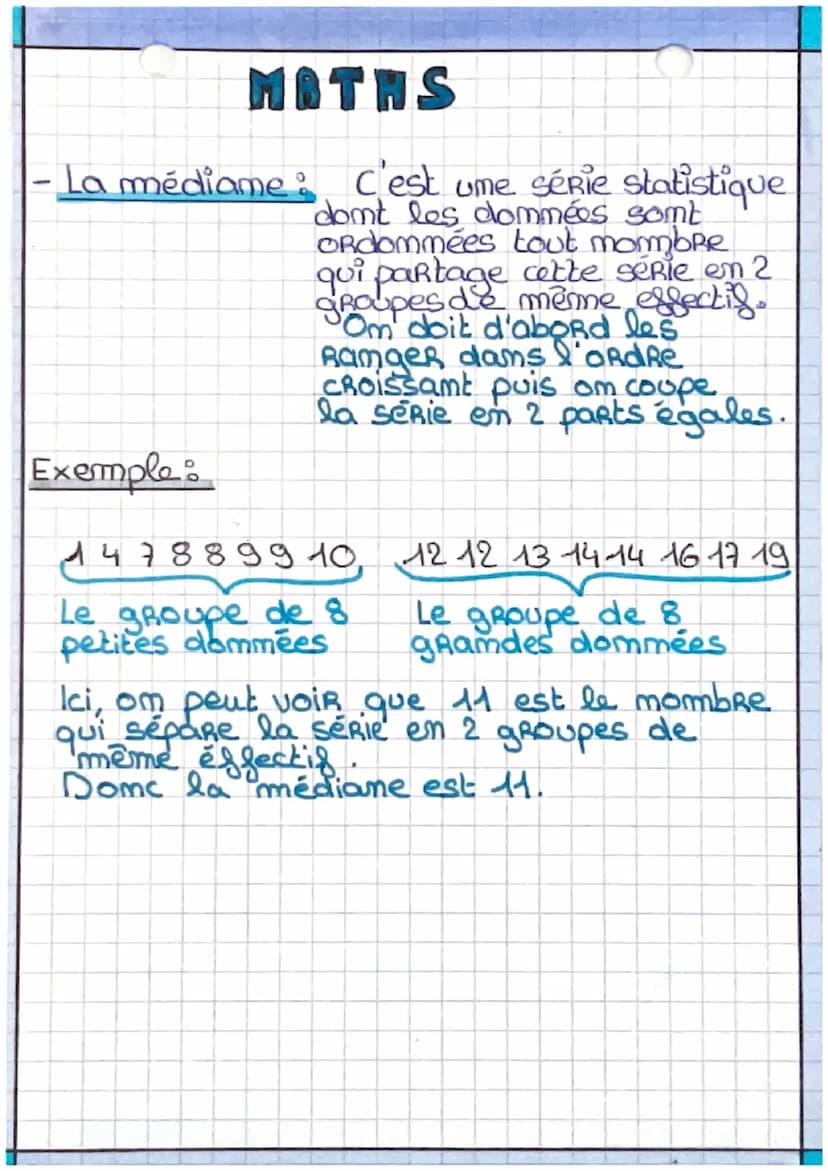 MATHS
- La médiane : C'est une série statistique
dont les données sont
ordonnées tout nombre
qui partage cette série en 2
groupes de même effectif.
On doit d'abord les
ranger dans l'ordre
croissant puis on coupe
la série en 2 parts égales.
Exemple :
1 4 7 8 8 9 9 10 12 12 13 14 14 16 17 19
Le groupe de 8 Le groupe de 8
petites données grandes données
Ici, on peut voir que 11 est le nombre
qui sépare la série en 2 groupes de
même éffectif.
Donc la médiane est 11.